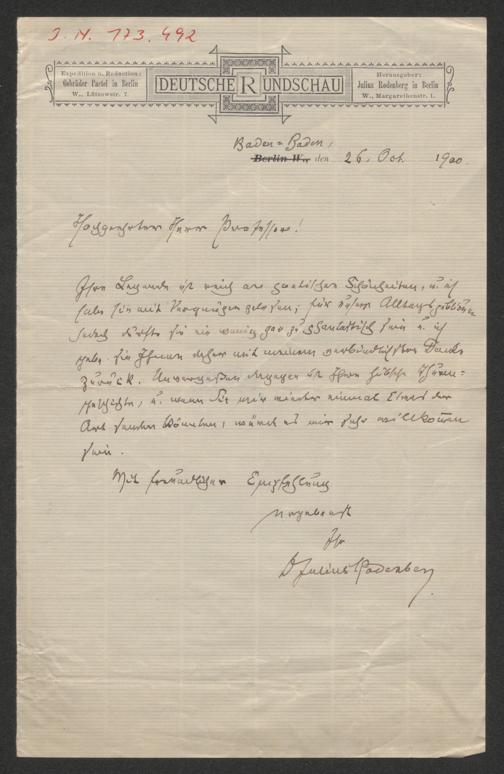 J. N. 173.492
Expedition u. Redaction:
Gebrüder Paetel in Berlin
W., Lützowstr. 7.
DEUTSCHE RUNDSCHAU
Herausgeber:
Julius Rodenberg in Berlin
W., Margarethenstr. 1.
Baden-Baden,
Berlin W., den 26. Oct. 1900.
Hochgeehrter Herr Professor!
Ihre Legende ist reich an poetischen Schönheiten, u. ich
habe sie mit Vergnügen gelesen; für unser Alltags
jedoch dürfte sie ein wenig gar zu phantastisch sein u. ich
gebe sie Ihnen daher mit meinem verbindlichsten Danke
zurück. Unvergessen dagegen ist Ihre hübsche
geschichte, u. wenn Sie mir wieder einmal Etwas der
Art senden könnten, würde es mir sehr willkommen
sein.
Mit freundlicher Empfehlung
ergebenst
Ihr
Dr Julius Rodenberg